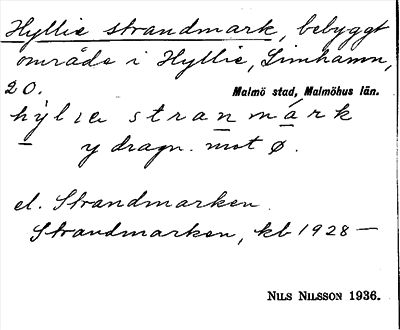 Hyllie strandmark, bebyggt
område i Hyllie, Limhamn,
20. Malmö stad, Malmöhus län.
hỳlıe stranmárk
y dragn. mot ø.
el. Strandmarken.
Strandmarken, kb 1928 —
NILS NILSSON 1936.